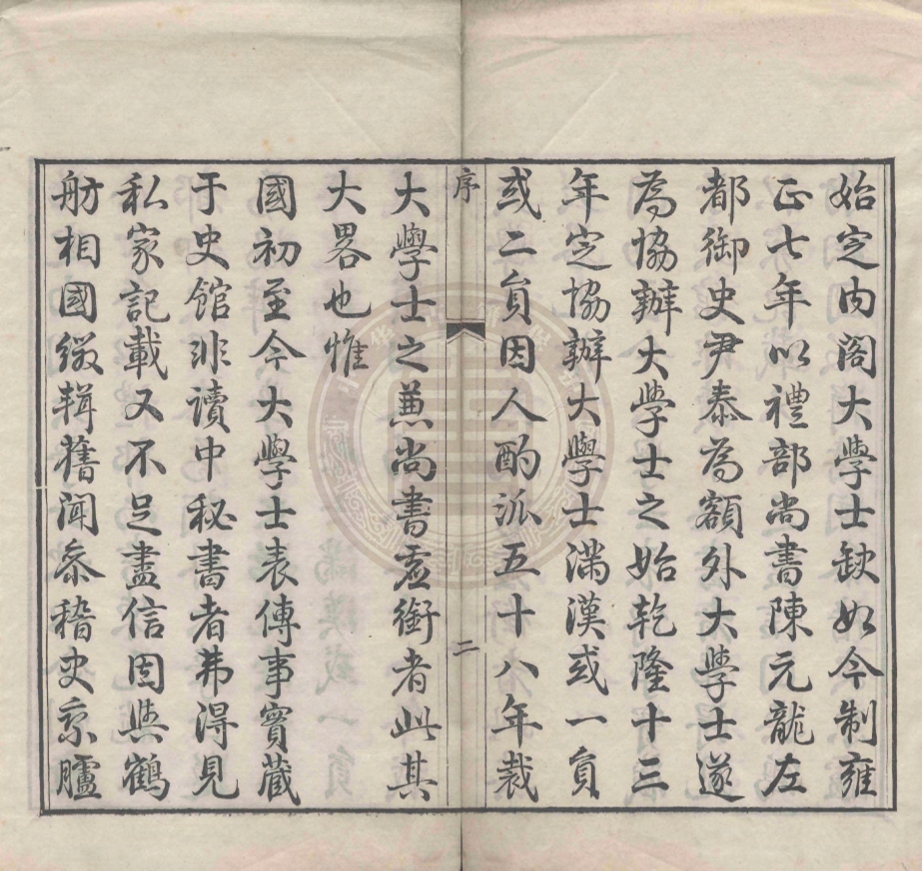 始定内閣大學士缺如今制雍
正七年以禮部尚書陳元龍左
都御史尹泰為額外大學士遂
為協辦大學士之始乾隆十三
年定協辦大學士滿漢或一負
或二負因人酌派五十八年裁
序
二
大學士之兼尚書虛銜者此其
大畧也惟
國初至今大學士表傳事實藏
于史館非讀中秘書者弗得見
私家記載又不足盡信因與鶴
舫相國綴輯舊聞參稽史宬臚